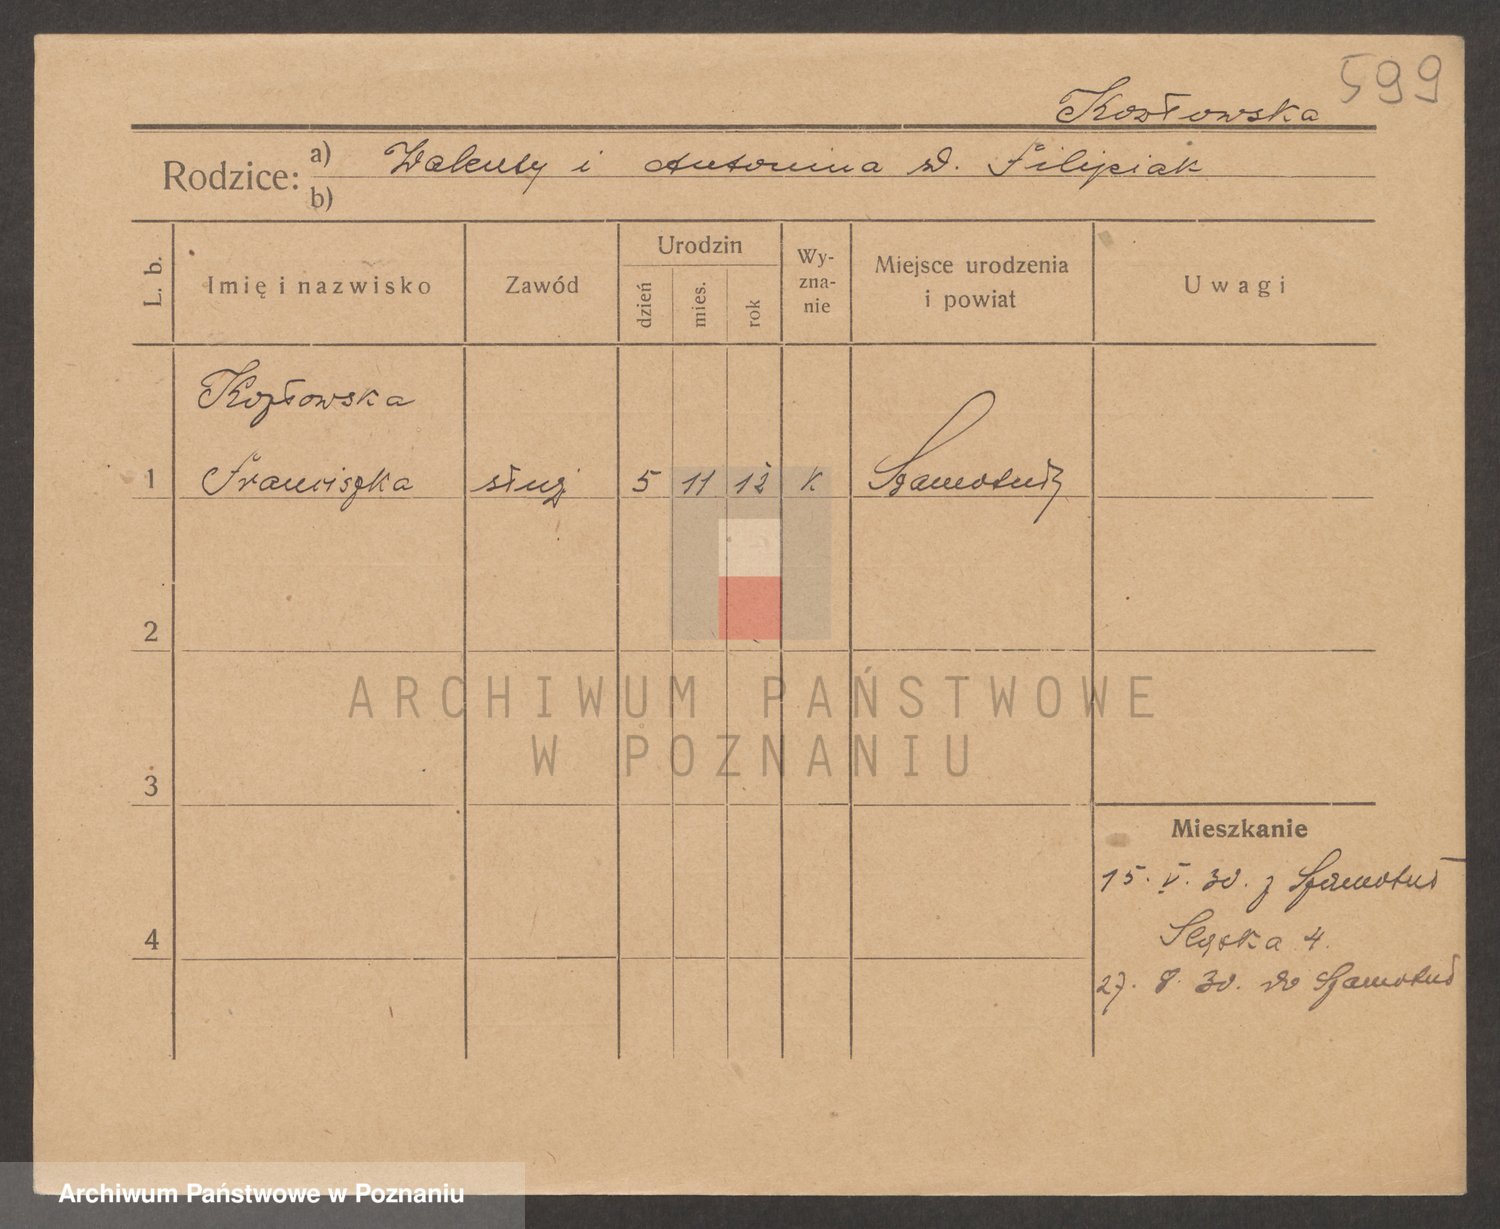 599
Kozłowska
Rodzice: a) Walenty i Antonina d. Filipiak
b)
L. b.
Imię i nazwisko
Zawód
Urodzin
dzień
mies.
rok
Wy-
zna-
nie
Miejsce urodzenia
i powiat
Uwagi
Kozłowska
1 Franciszka służ 5 11 12 k Szamotuły
2
ARCHIWUM PAŃSTWOWE
W POZNANIU
3
Mieszkanie
15. V. 30. z Szamotuł
4 Śląska 4.
27. 8. 30. do Szamotuł
Archiwum Państwowe w Poznaniu